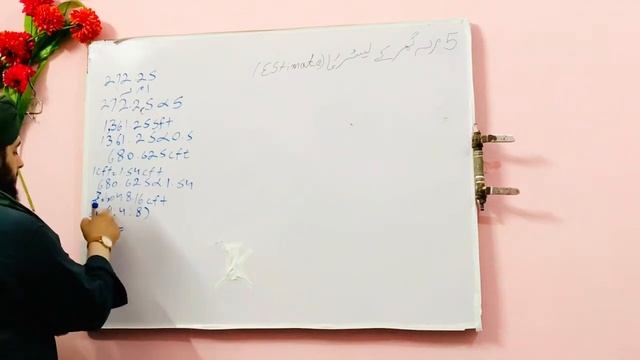 5 مرلہ گھر کے لینٹر کا (Estimate)
272.25
1 مرلہ
272.25×5
1361.25sft
1361.25×0.5
680.625cft
1cft=1.54cft
680.625×1.54
4.8)
=